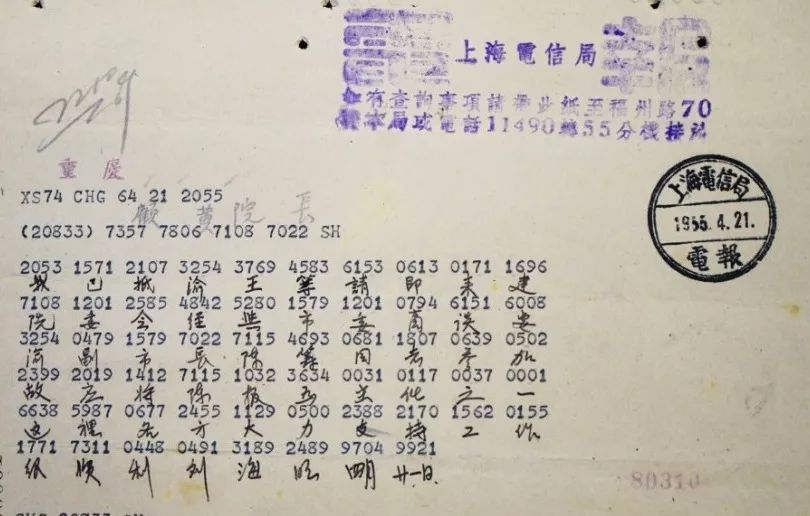 上海電信局
如有查詢事項請帶此紙至福州路70
號本局或電話11490轉55分機接洽
重慶
XS74 CHG 64 21 2055
顧黃院長
(20833) 7357 7806 7108 7022 SH
上海電信局
1955.4.21.
電報
2053 1571 2107 3254 3769 4583 6153 0613 0171 1696
我已抵渝王等請即來建
7108 1201 2585 4842 5280 1579 1201 0794 6151 6008
院委会經與市委商談要
3254 0479 1579 7022 7115 4693 0681 1807 0639 0502
渝副市長陳籌同志参加
2399 2019 1412 7115 1032 3634 0031 0117 0037 0001
故应將陳報为主任之一
6638 5987 0677 2455 1129 0500 2388 2170 1562 0155
這裡各方大力支持工作
1771 7311 0448 0491 3189 2489 9704 9921
很順利刘海旺四月廿一日
80310